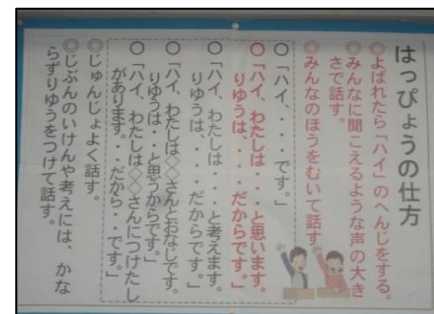 はっぴょうの仕方
◎よばれたら「ハイ」のへんじをする。
◎みんなに聞こえるような声の大き
さで話す。
◎みんなのほうをむいて話す。
〇「ハイ、・・・です。」
〇「ハイ、わたしは・・・と思います。
りゆうは、・・・だからです。」
〇「ハイ、わたしは・・・と考えます。
りゆうは、・・・だからです。」
〇「ハイ、わたしは◇◇さんとおなじです。
りゆうは・・と思うからです。」
〇「ハイ、わたしは◇◇さんにつけたし
があります。・・だから・・です。」
◎じゅんじょよく話す。
◎じぶんのいけんや考えには、かな
らずりゆうをつけて話す。